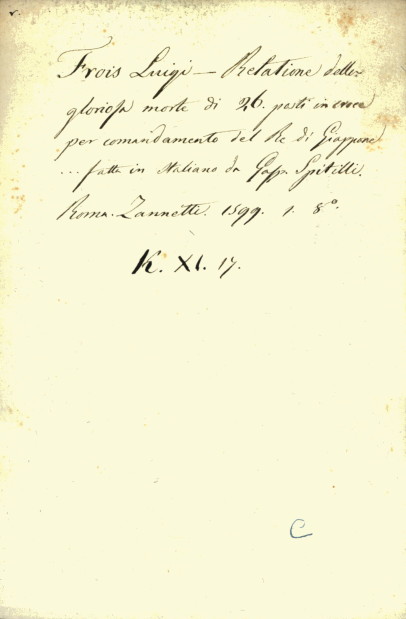 Frois Luigi — Relatione della
gloriosa morte di 26. posti in croce
per comandamento del Re di Giappone
... fatta in Italiano da Gasp. Spitilli.
Roma. Zannetti. 1599. 1. 8º.
K. XI. 17.
C